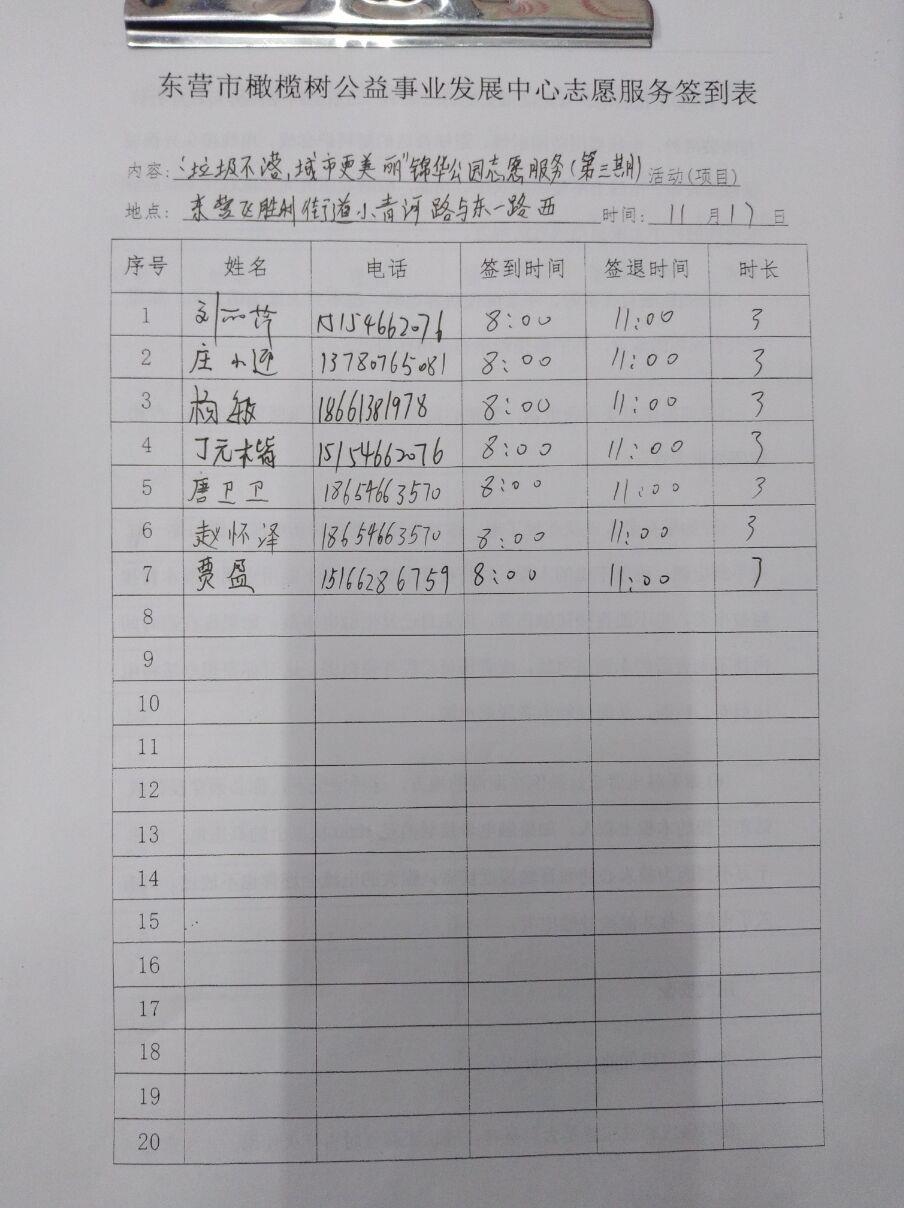 东营市橄榄树公益事业发展中心志愿服务签到表
内容:“垃圾不落,城市更美丽”锦华公园志愿服务(第三期)活动(项目)
地点: 东营区胜利街道小青河路与东一路西 时间: 11 月 17 日
序号 姓名 电话 签到时间 签退时间 时长
1 刘丽萍 15154662076 8:00 11:00 3
2 庄小迎 13780765081 8:00 11:00 3
3 杨敏 18661381978 8:00 11:00 3
4 丁元楷 15154662076 8:00 11:00 3
5 唐卫卫 18654663570 8:00 11:00 3
6 赵怀泽 18654663570 8:00 11:00 3
7 贾盈 15166286759 8:00 11:00 3
8
9
10
11
12
13
14
15
16
17
18
19
20